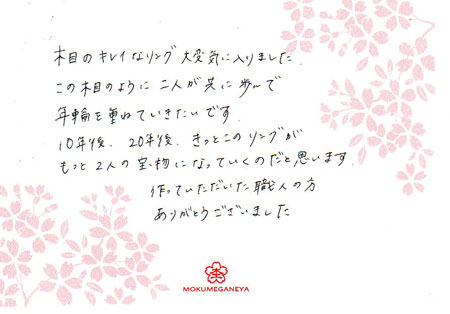 木目のキレイなリング大変気に入りました.
この木目のように二人が共に歩んで
年輪を重ねていきたいです.
10年後、20年後、きっとこのリングが
もっと2人の宝物になっていくのだと思います.
作っていただいた職人の方
ありがとうございました
MOKUMEGANEYA